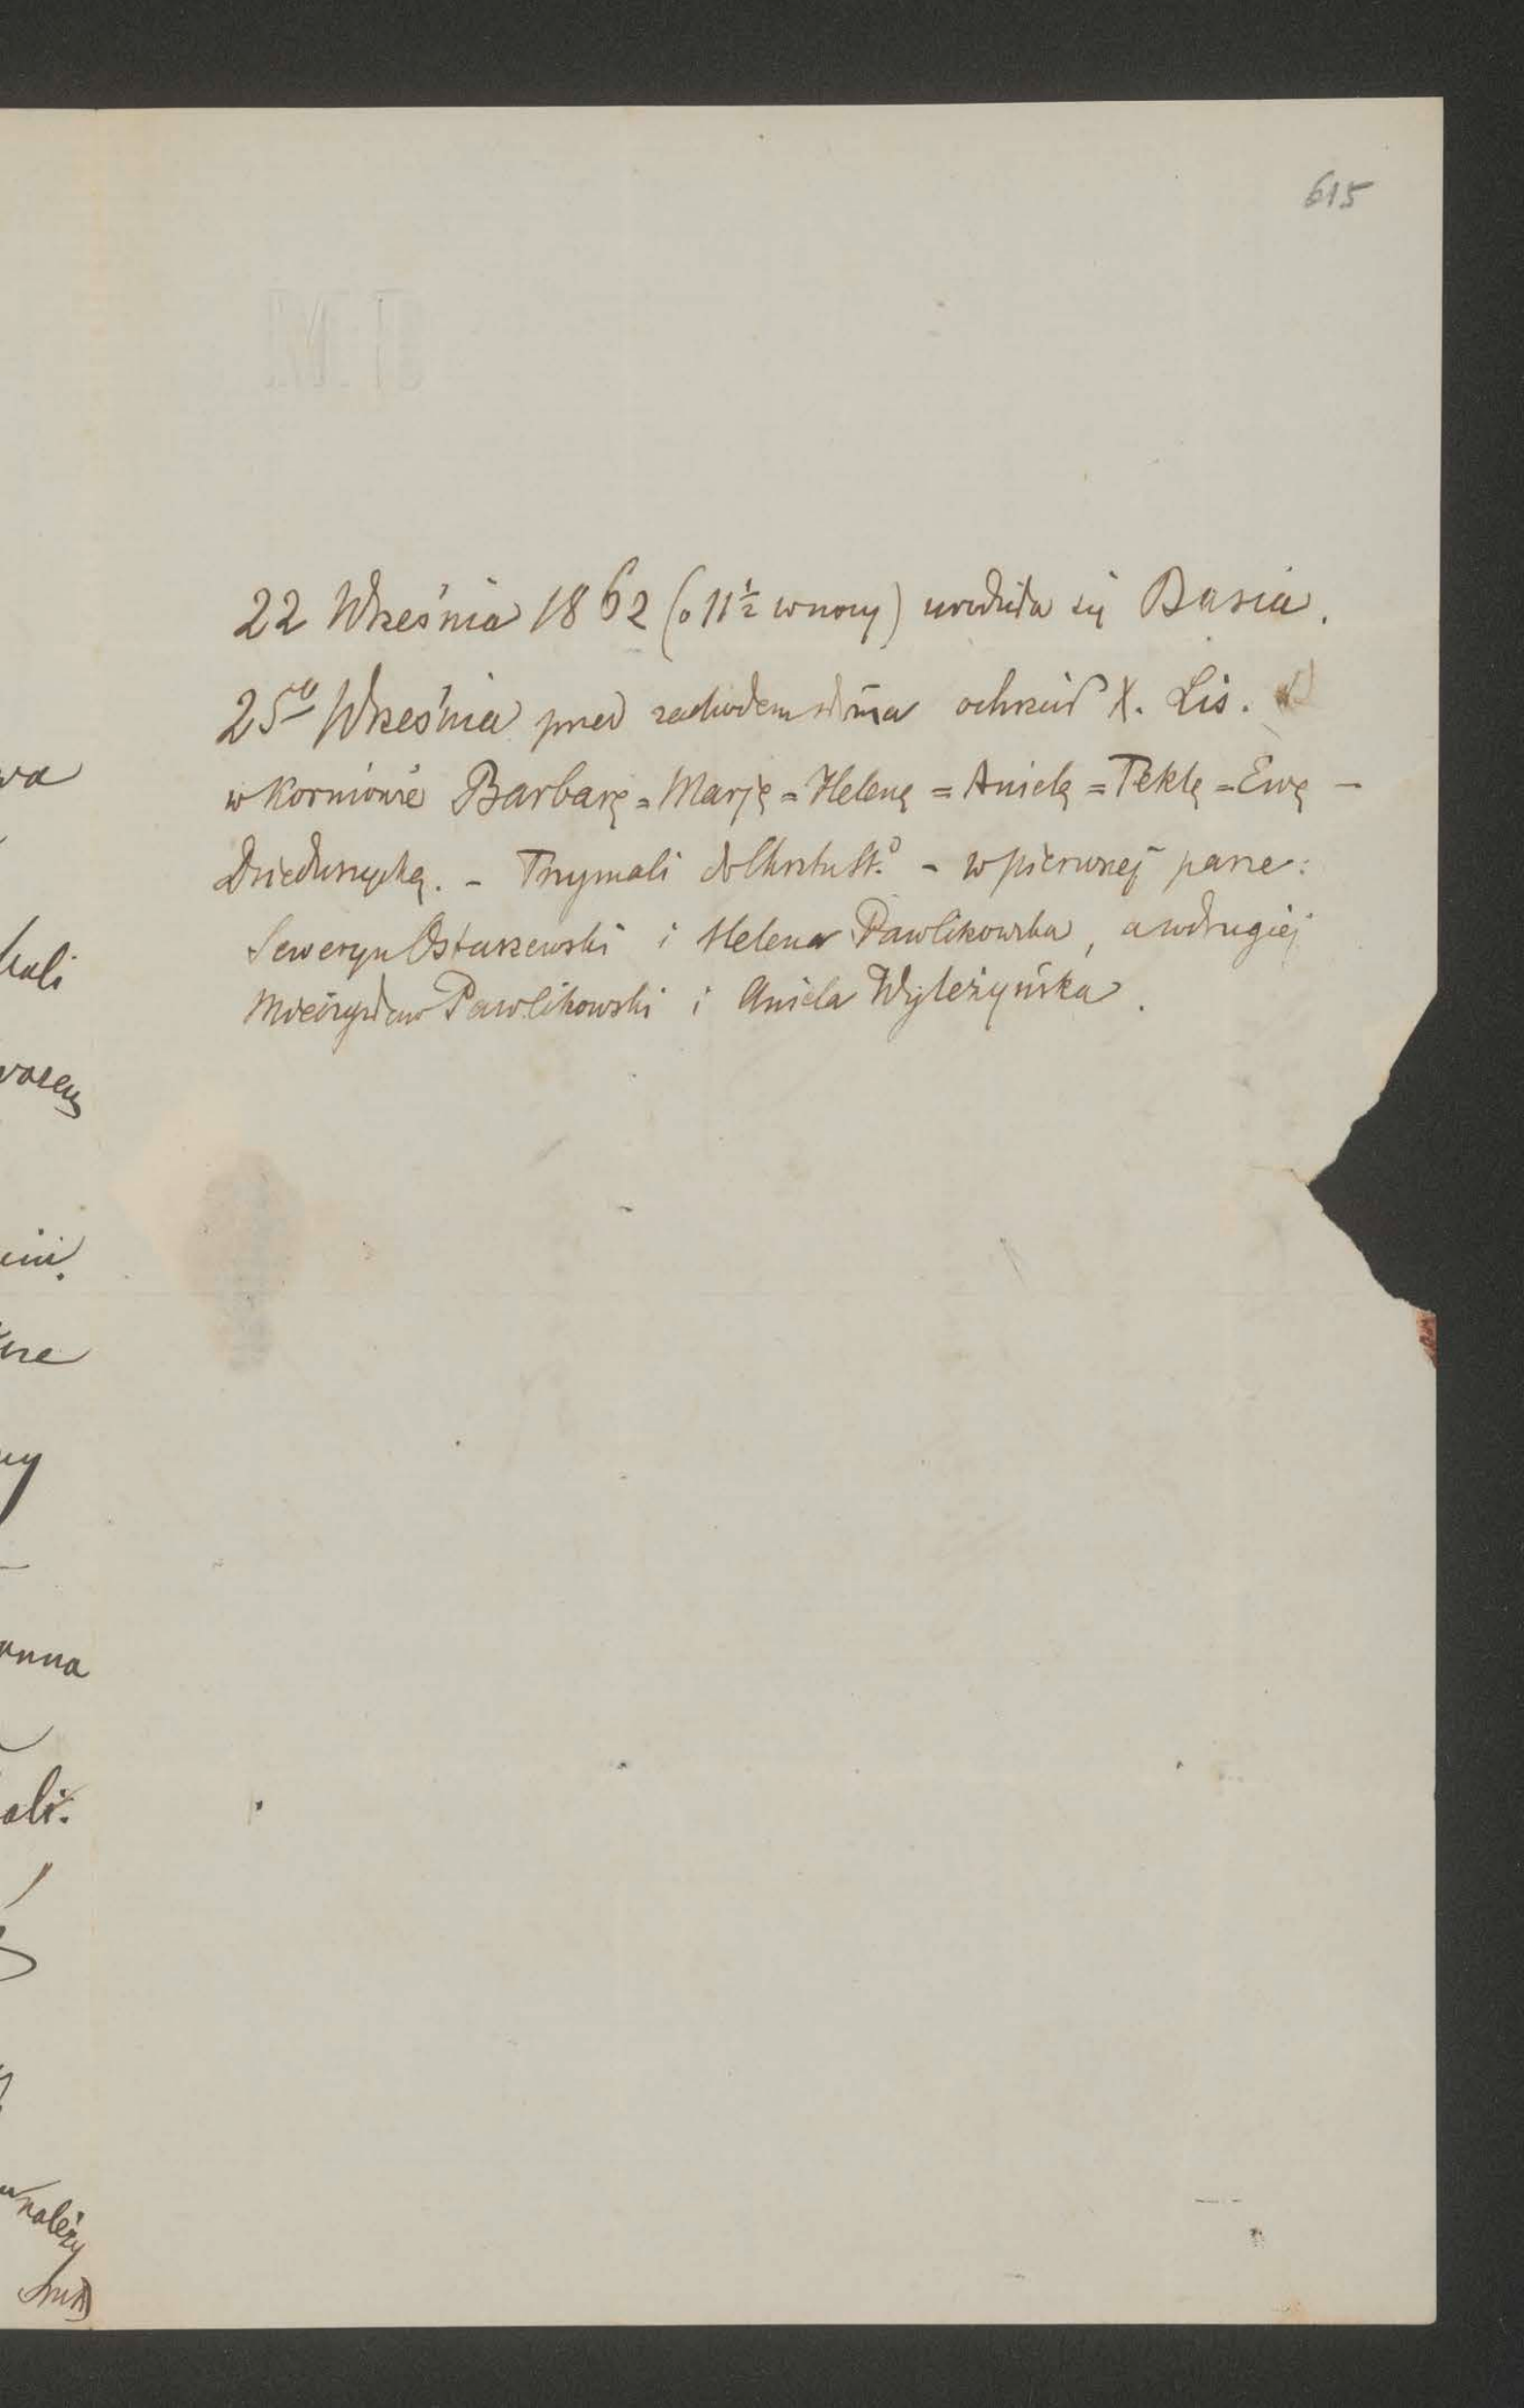 615
22 Września 1862 (o 11½ w nocy) urodziła się Basia.
25go Września przed zachodem słońca ochrzcił X. Lis.
w Korniowie Barbarę = Marję = Helenę = Anielę = Teklę = Ewę –
Dzieduszycką. – Trzymali do Chrztu St.o – w pierwszej parze:
Seweryn Ostaszewski i Helena Pawlikowska, a w drugiej
Mieczysław Pawlikowski i Aniela Wyleżyńska.
wa
ali.
należy